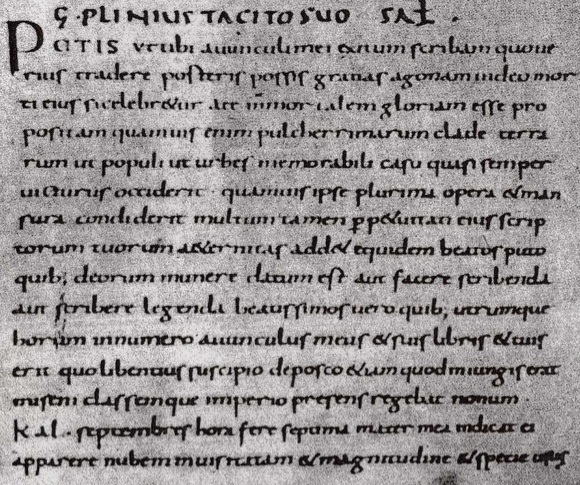 C·PLINIUS TACITO SUO SAL·
PETIS ut tibi avunculi mei exitum scribam quo ve
rius tradere posteris possis gratias ago nam video mor
ti eius si celebretur a te inmortalem gloriam esse pro
positam quamuis enim pulcherrimarum clade terra
rum ut populi ut urbes memorabili casu quasi semper
uicturus occiderit · quamuis ipse plurima opera & man
sura condiderit multum tamen ꝑp&uitati eius scrip
torum tuorum a&ernitas add& equidem beatos puto
quib; deorum munere datum est aut facere scribenda
aut scribere legenda beatissimos uero quib; utrumque
horum in numero auunculus meus & suis libris & tuis
erit quo libentius suscipio deposco &iam quod iniungis erat
miseni classemque imperio presens regebat nonum ·
kal · septembres hora fere septima mater mea indicat ei
apparere nubem inuisitatam & magnitudine & specie